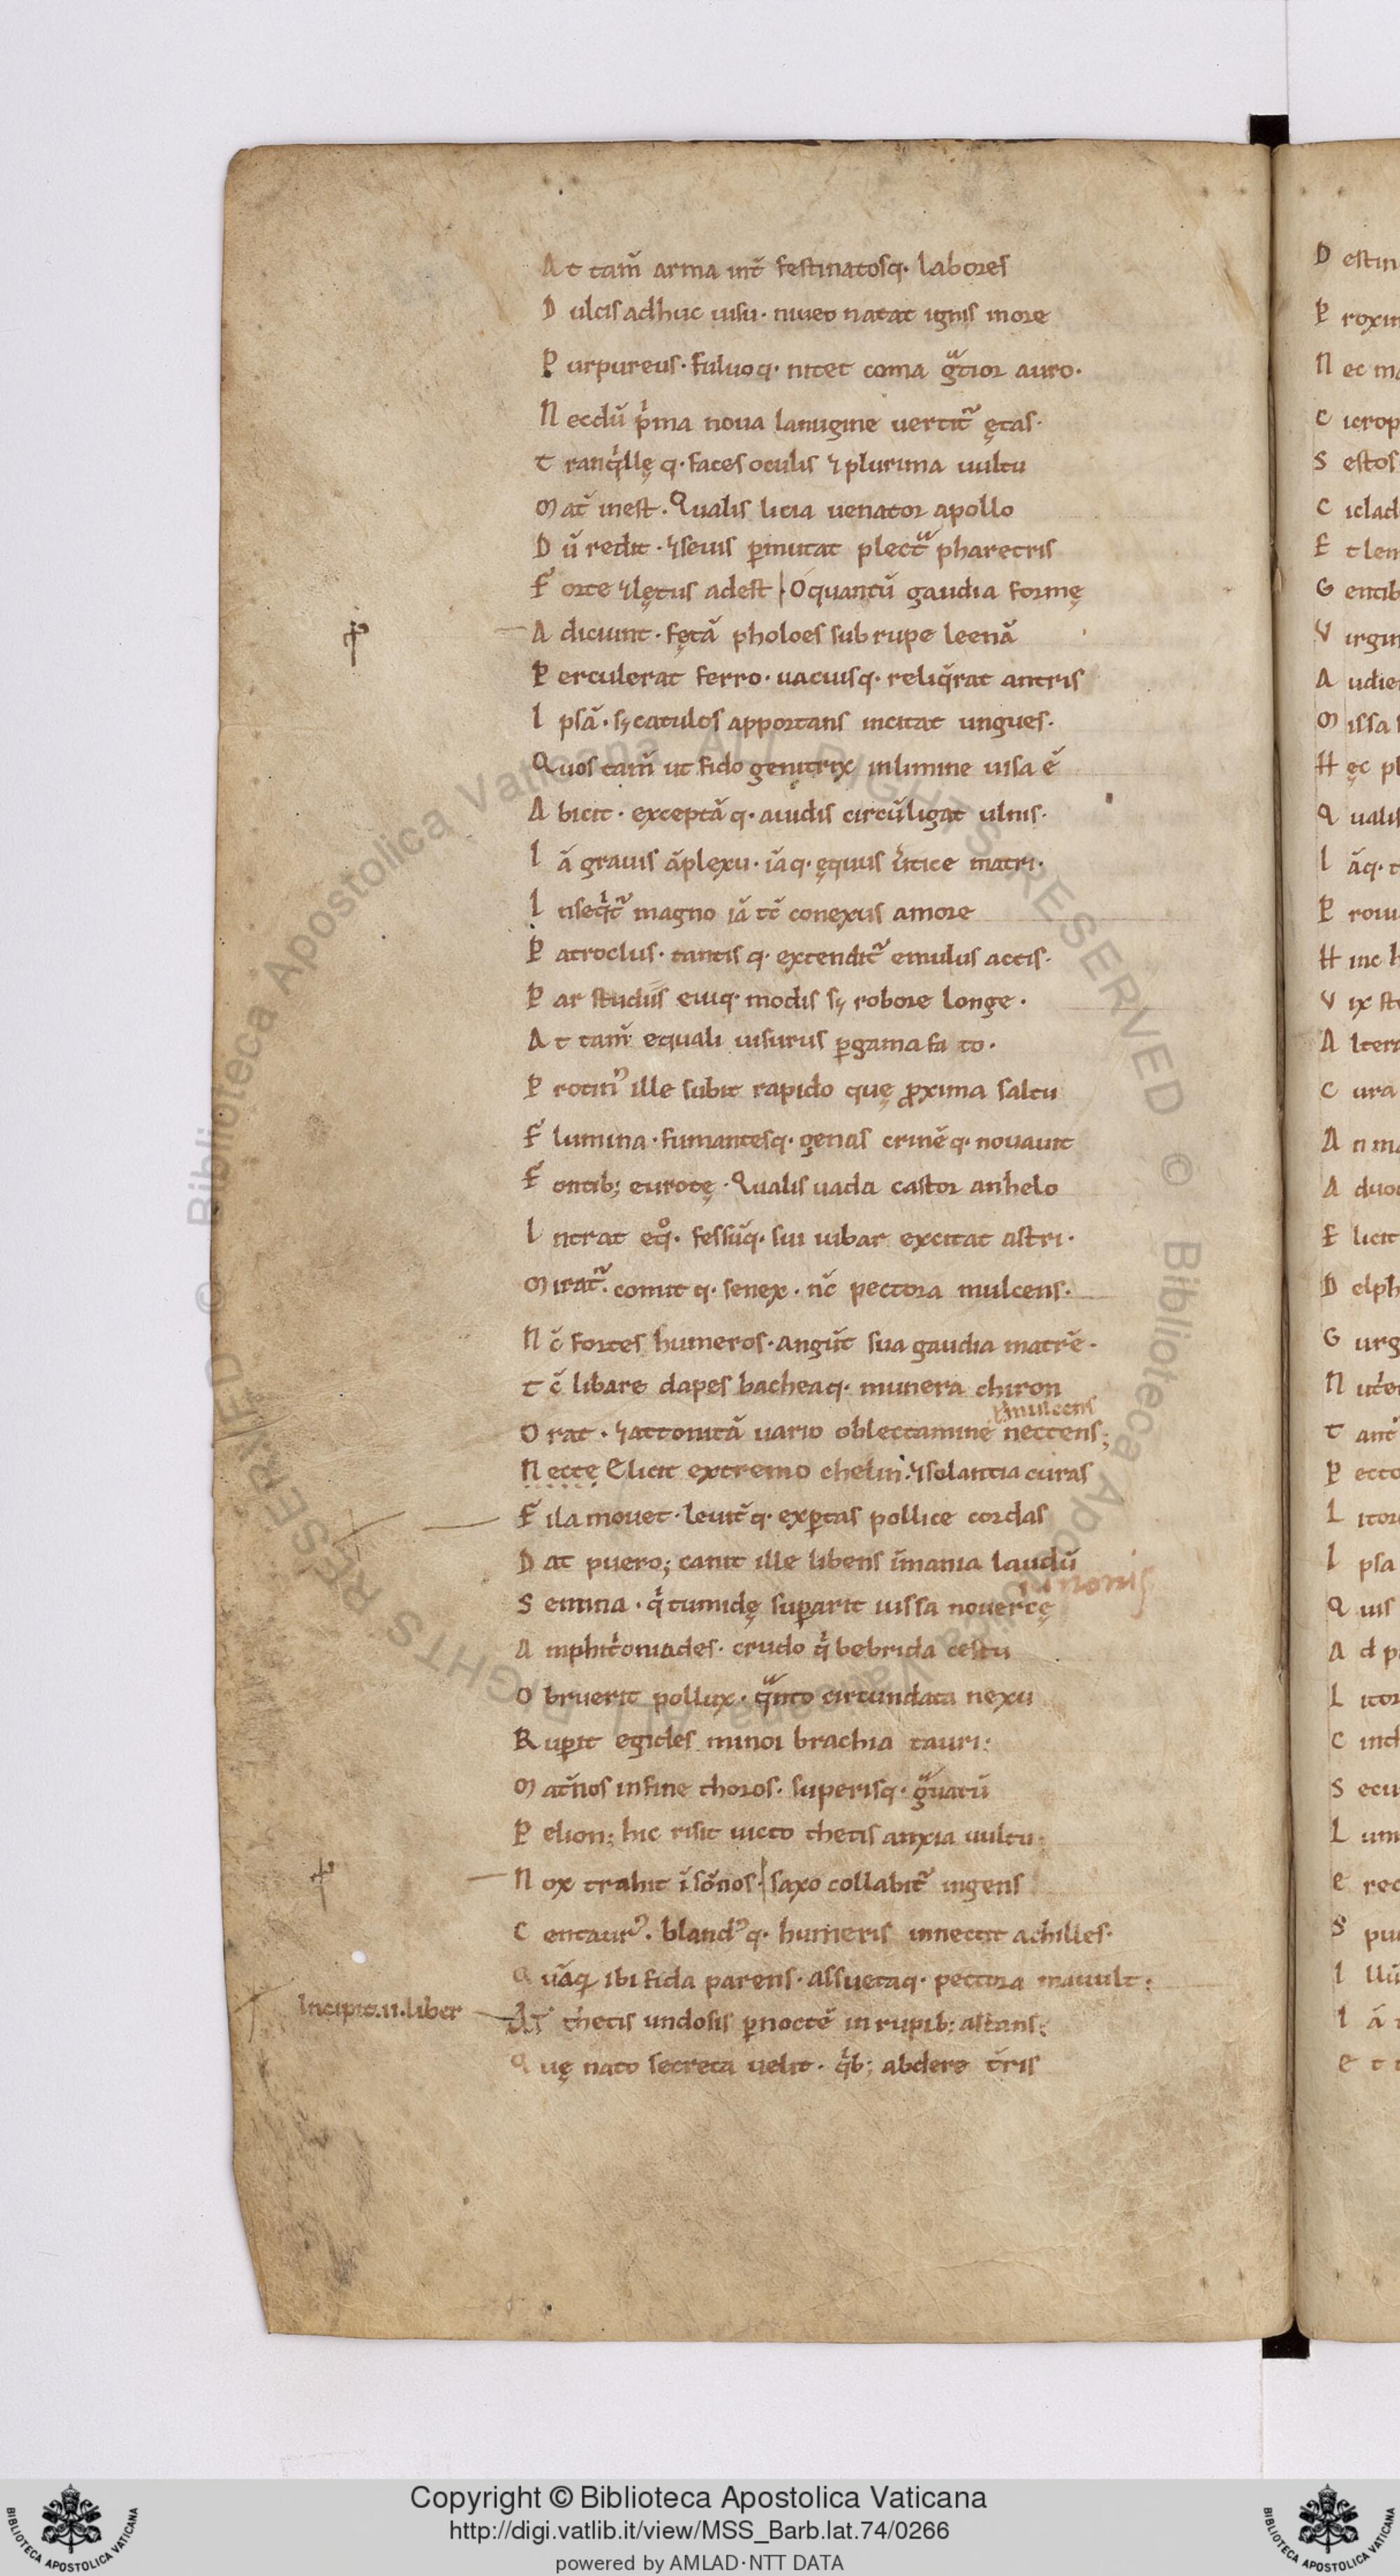 At tam̄ arma int̄ festinatosq· labores
Dulcis adhuc uisu· niueo natat ignis in ore
Purpureus· fuluoq· nitet coma gᵃtior auro·
Necdū pⁱma noua lanugine uertit᷑ ętas·
tranqⁱllę q· faces oculis ⁊ plurima uultu
Mat̄ inest· Qualis licia uenator apollo
Dū redit· ⁊ seuis ꝑmutat plectᵃ pharetris
Forte ⁊ lętus adest | O quantū gaudia formę
Adiciunt· fętā pholoes sub rupe leenā
Perculerat ferro· uacuisq· reliq̄rat antris
Ipsā· s; catulos apportans incitat ungues·
Quos tam̄ ut fido genitrix in limine uisa ē
Abicit· exceptā q· auidis circūligat ulnis·
Iā grauis āplexu· iāq· ęquus uⁱtice matri·
Inseqⁱt᷑ magno iā tc̄ conexus amore
Patroclus· tantis q· extendit᷑ emulus actis·
Par studiis euiq· modis s; robore longe·
At tam̄ equali uisurus ꝑgama fato·
Protinꝰ ille subit rapido quę ꝓxima saltu
Flumina· fumantesq· genas crinēq· nouauit
Fontib; eurotę· Qualis uada castor anhelo
Intrat eqᵒ· fessūq· sui iubar excitat astri·
Mirat᷑· comit q· senex· nc̄ pectora mulcens·
Nc̄ fortes humeros· angūt sua gaudia matrē·
tc̄ libare dapes bacheaq· munera chiron
ꝑmulcens
Orat· ⁊ attonitā uario oblectamine nectens;
Necte Elicit extremo chelin· ⁊ solantia curas
Fila mouet· leuit̄q· exꝑtas pollice cordas
Dat puero; canit ille libens īmania laudū
iunonis
Semina· qⁱ tumidę suꝑarit iussa nouercę
Amphitⁱoniades· crudo qⁱ bebrida cestu
Obruerit pollux· qᵃnto circundata nexu
Ruꝑit egides minoi brachia tauri:
Mat̄nos in fine thoros· superisq· gᵃuatū
Pelion; hic risit uicto thetis anxia uultu;
Nox trahit ī sōnos· | saxo collabit᷑ ingens
Centaurꝰ· blandꝰq· humeris innectit achilles·
Quāq ibi fida parens· assuetaq· pectora mauult;
Incipit·ii·liber
At thetis undosis ꝑnoctē in rupib; astans;
Quę nato secreta uelit· qⁱb; abdere t̄ris
Copyright © Biblioteca Apostolica Vaticana
http://digi.vatlib.it/view/MSS_Barb.lat.74/0266
powered by AMLAD·NTT DATA